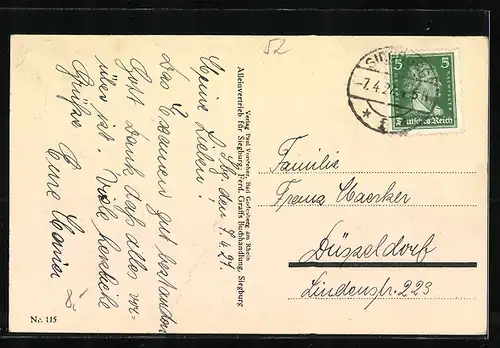 52
Sbg den 7.4.27.
Meine Lieben!
Das Examen gut bestanden
Gott Dank daß alles vor-
über ist. Viele herzliche
Grüße Eure
Verlag Paul Bad Godesberg am Rhein
Alleinvertrieb für Siegburg: Ferd. Graffs Buchhandlung, Siegburg
Nr. 115
-7.4.27
5 5
Reich
Familie
Franz
Düsseldorf
Lindenstr. 223